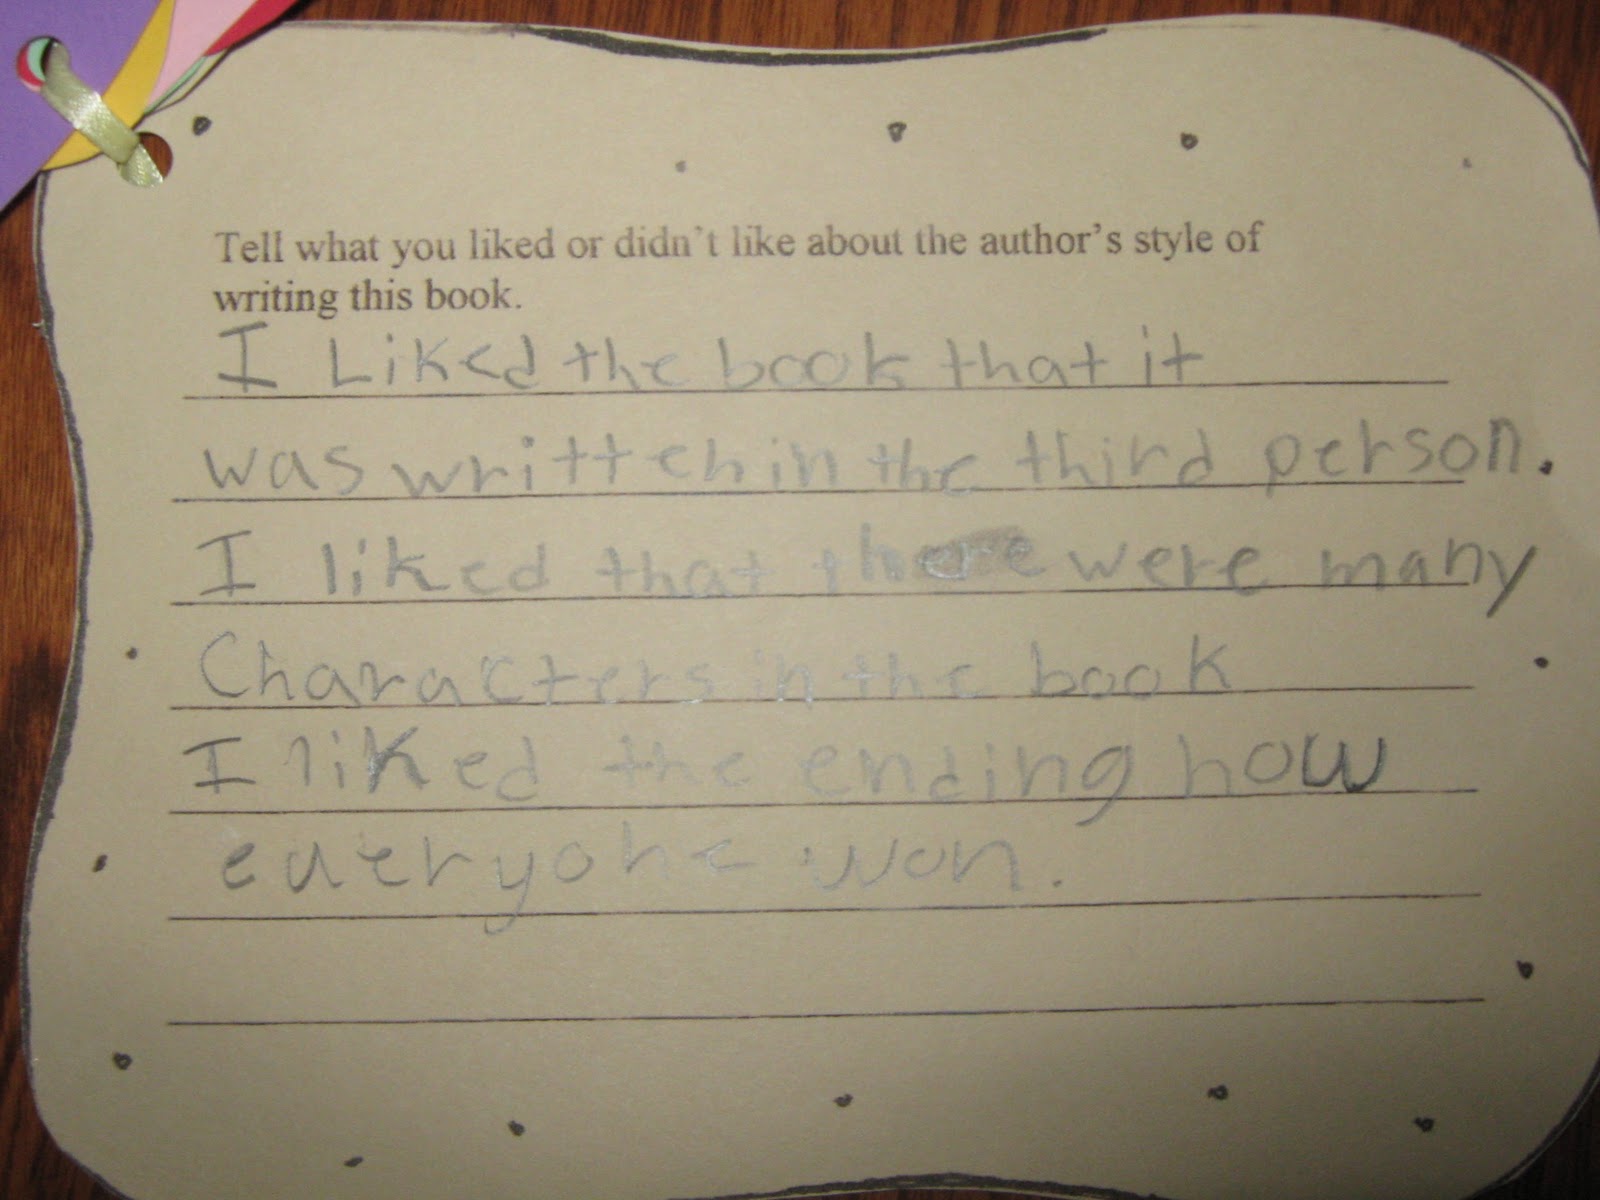 Tell what you liked or didn't like about the author's style of
writing this book.
I Liked the book that it
was written in the third person.
I liked that there were many
Characters in the book
I liked the ending how
everyone won.